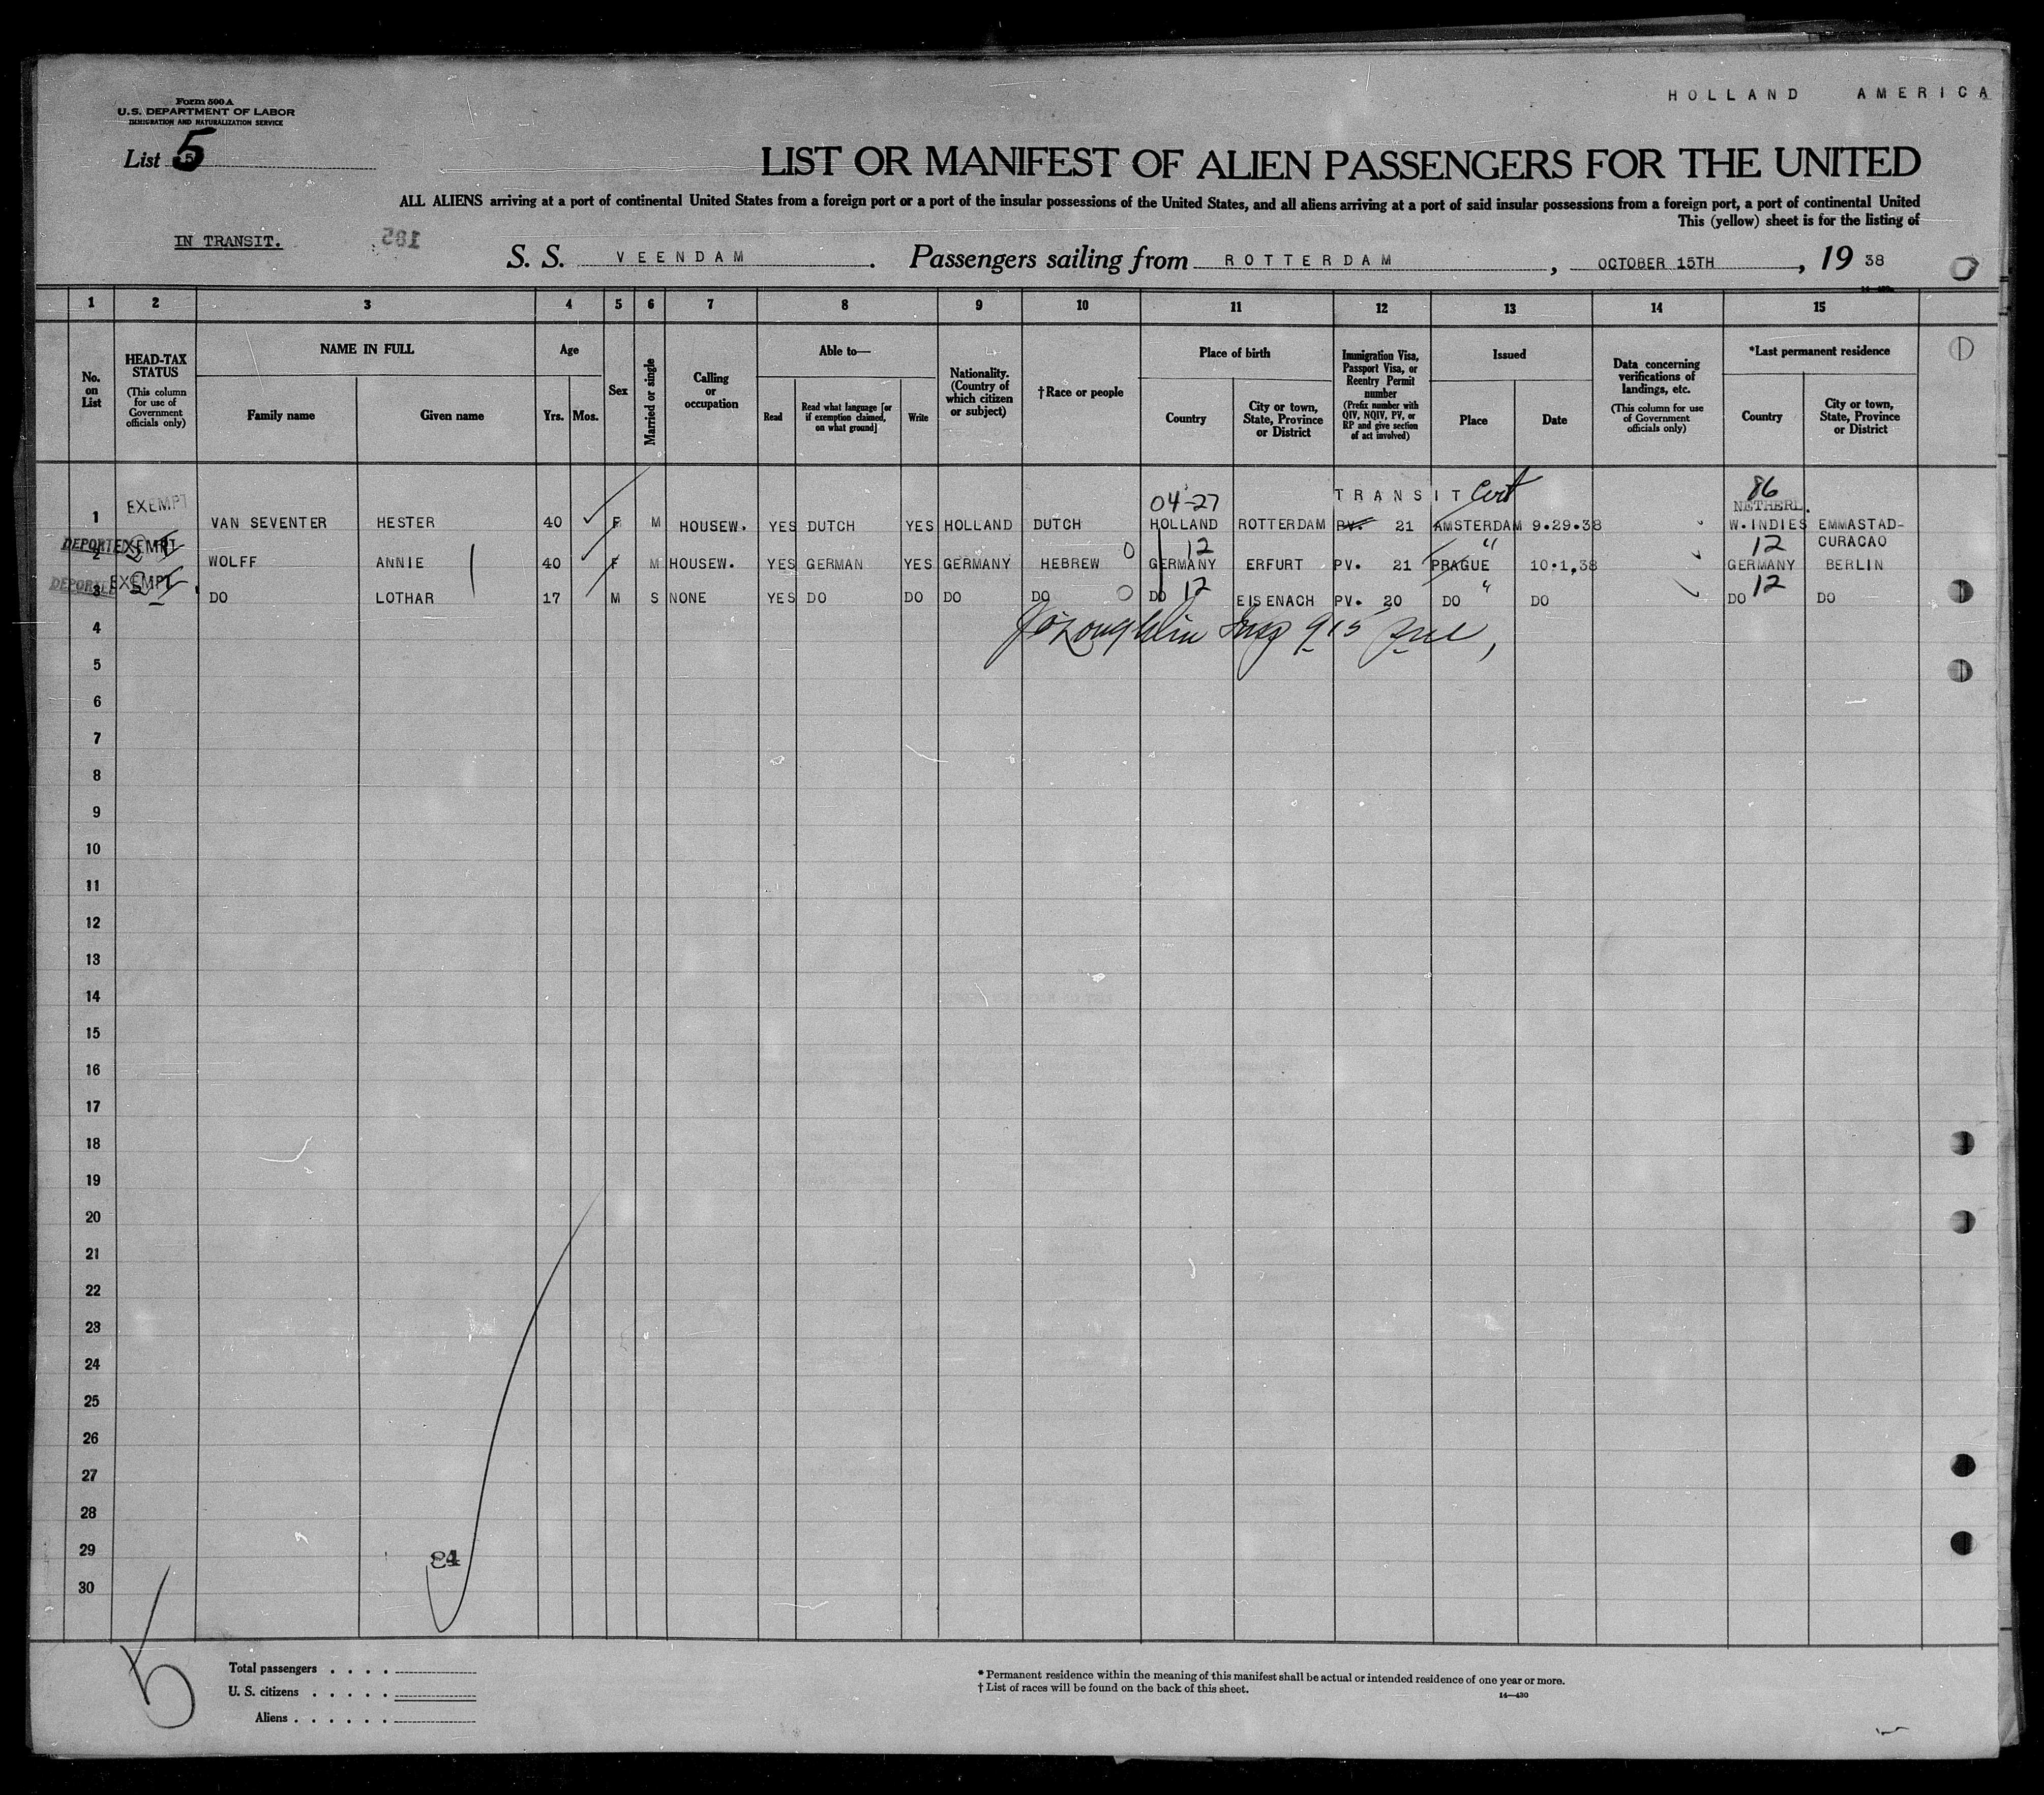 HOLLAND AMERICA
Form 500 A
U.S. DEPARTMENT OF LABOR
IMMIGRATION AND NATURALIZATION SERVICE
List 5
LIST OR MANIFEST OF ALIEN PASSENGERS FOR THE UNITED
ALL ALIENS arriving at a port of continental United States from a foreign port or a port of the insular possessions of the United States, and all aliens arriving at a port of said insular possessions from a foreign port, a port of continental United
This (yellow) sheet is for the listing of
IN TRANSIT.
185
S. S. VEENDAM. Passengers sailing from ROTTERDAM, OCTOBER 15TH, 19 38
1 2 3 4 5 6 7 8 9 10 11 12 13 14 15
No. on List
HEAD-TAX STATUS
(This column for use of Government officials only)
NAME IN FULL
Family name
Given name
Age
Yrs. Mos.
Sex
Married or single
Calling or occupation
Able to—
Read
Read what language [or if exemption claimed, on what ground]
Write
Nationality. (Country of which citizen or subject)
†Race or people
Place of birth
Country
City or town, State, Province or District
Immigration Visa, Passport Visa, or Reentry Permit number
(Prefix number with QIV, NQIV, PV, or RP and give section of act involved)
Issued
Place
Date
Data concerning verifications of landings, etc.
(This column for use of Government officials only)
*Last permanent residence
Country
City or town, State, Province or District
TRANSIT Cert
EXEMPT 04-27 86 NETHERL.
1 VAN SEVENTER HESTER 40 F M HOUSEW. YES DUTCH YES HOLLAND DUTCH HOLLAND ROTTERDAM PV. 21 AMSTERDAM 9.29.38 W.INDIES EMMASTAD-
CURACAO
DEPORTED EXEMPT 12 " 12
2 WOLFF ANNIE 40 F M HOUSEW. YES GERMAN YES GERMANY HEBREW GERMANY ERFURT PV. 21 PRAGUE 10.1.38 GERMANY BERLIN
DEPORTED EXEMPT 12 " 12
3 DO LOTHAR 17 M S NONE YES DO DO DO DO DO EISENACH PV. 20 DO DO DO DO
4
5
6
7
8
9
10
11
12
13
14
15
16
17
18
19
20
21
22
23
24
25
26
27
28
29
84
30
5
Total passengers . . . .
U. S. citizens . . . . .
Aliens . . . . . .
* Permanent residence within the meaning of this manifest shall be actual or intended residence of one year or more.
† List of races will be found on the back of this sheet.
14—430